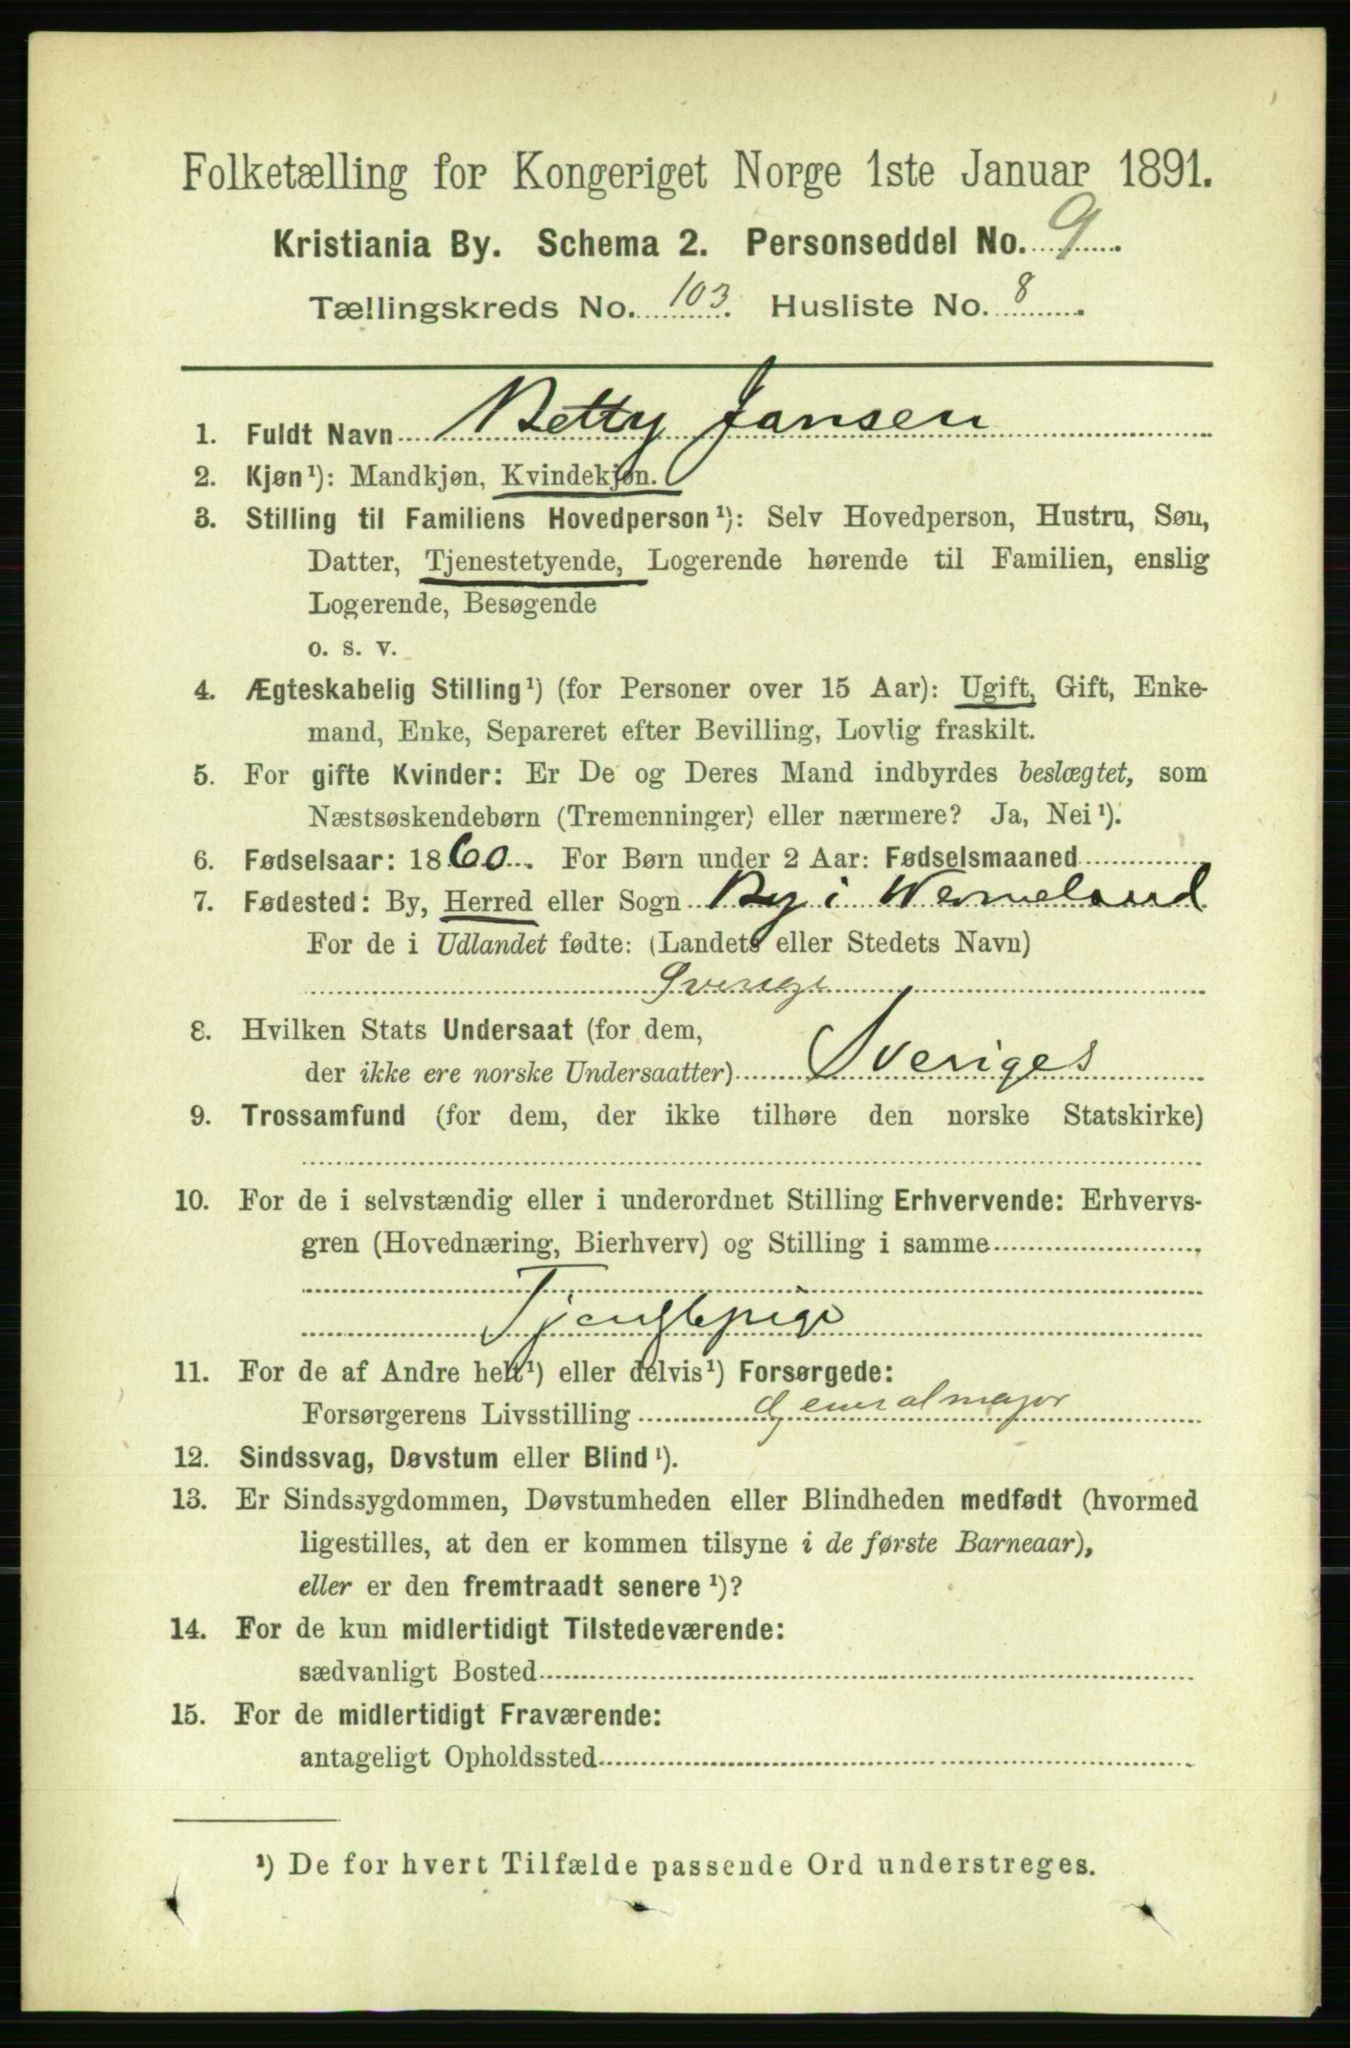 Folketælling for Kongeriget Norge 1ste Januar 1891.
Kristiania By. Schema 2. Personseddel No. 9
Tællingskreds No. 103. Husliste No. 8
1. Fuldt Navn Betty Jansen
2. Kjøn¹): Mandkjøn, Kvindekjøn.
3. Stilling til Familiens Hovedperson¹): Selv Hovedperson, Hustru, Søn,
Datter, Tjenestetyende, Logerende hørende til Familien, enslig
Logerende, Besøgende
o. s. v.
4. Ægteskabelig Stilling¹) (for Personer over 15 Aar): Ugift, Gift, Enke-
mand, Enke, Separeret efter Bevilling, Lovlig fraskilt.
5. For gifte Kvinder: Er De og Deres Mand indbyrdes beslægtet, som
Næstsøskendebørn (Tremenninger) eller nærmere? Ja, Nei¹).
6. Fødselsaar: 1860. For Børn under 2 Aar: Fødselsmaaned
7. Fødested: By, Herred eller Sogn By i Wermeland
For de i Udlandet fødte: (Landets eller Stedets Navn)
Sverige
8. Hvilken Stats Undersaat (for dem,
der ikke ere norske Undersaatter) Sveriges
9. Trossamfund (for dem, der ikke tilhøre den norske Statskirke)
10. For de i selvstændig eller i underordnet Stilling Erhvervende: Erhvervs-
gren (Hovednæring, Bierhverv) og Stilling i samme
Tjenstepige
11. For de af Andre helt¹) eller delvis¹) Forsørgede:
Forsørgerens Livsstilling Generalmajor
12. Sindssvag, Døvstum eller Blind¹).
13. Er Sindssygdommen, Døvstumheden eller Blindheden medfødt (hvormed
ligestilles, at den er kommen tilsyne i de første Barneaar),
eller er den fremtraadt senere¹)?
14. For de kun midlertidigt Tilstedeværende:
sædvanligt Bosted
15. For de midlertidigt Fraværende:
antageligt Opholdssted
¹) De for hvert Tilfælde passende Ord understreges.